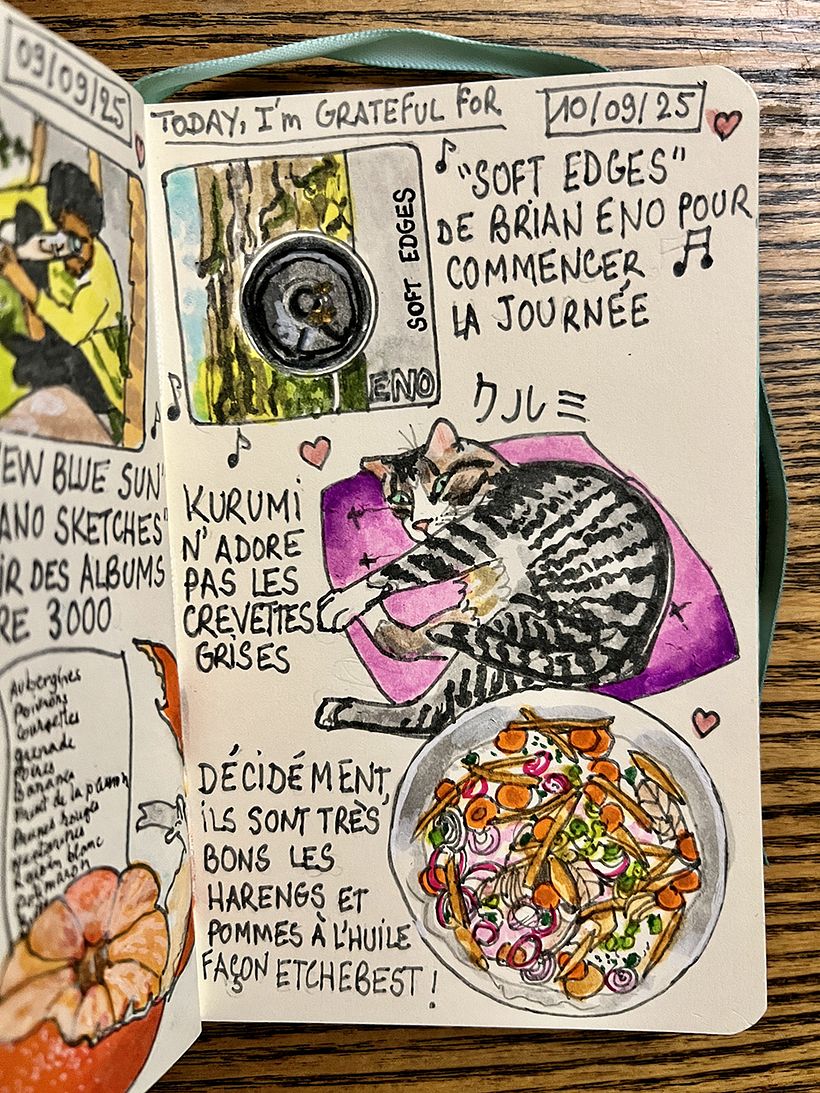 09/09/25
EW BLUE SUN"
ANO SKETCHES"
IR DES ALBUMS
RE 3000
Aubergines
Poivrons
Courgettes
grenade
Poires
Bananes
Raisin blanc
TODAY, I'm GRATEFUL FOR
10/09/25
SOFT EDGES
ENO
"SOFT EDGES"
DE BRIAN ENO POUR
COMMENCER
LA JOURNÉE
クルミ
KURUMI
N'ADORE
PAS LES
CREVETTES
GRISES
DÉCIDÉMENT,
ILS SONT TRÈS
BONS LES
HARENGS ET
POMMES À L'HUILE
FAÇON ETCHEBEST!